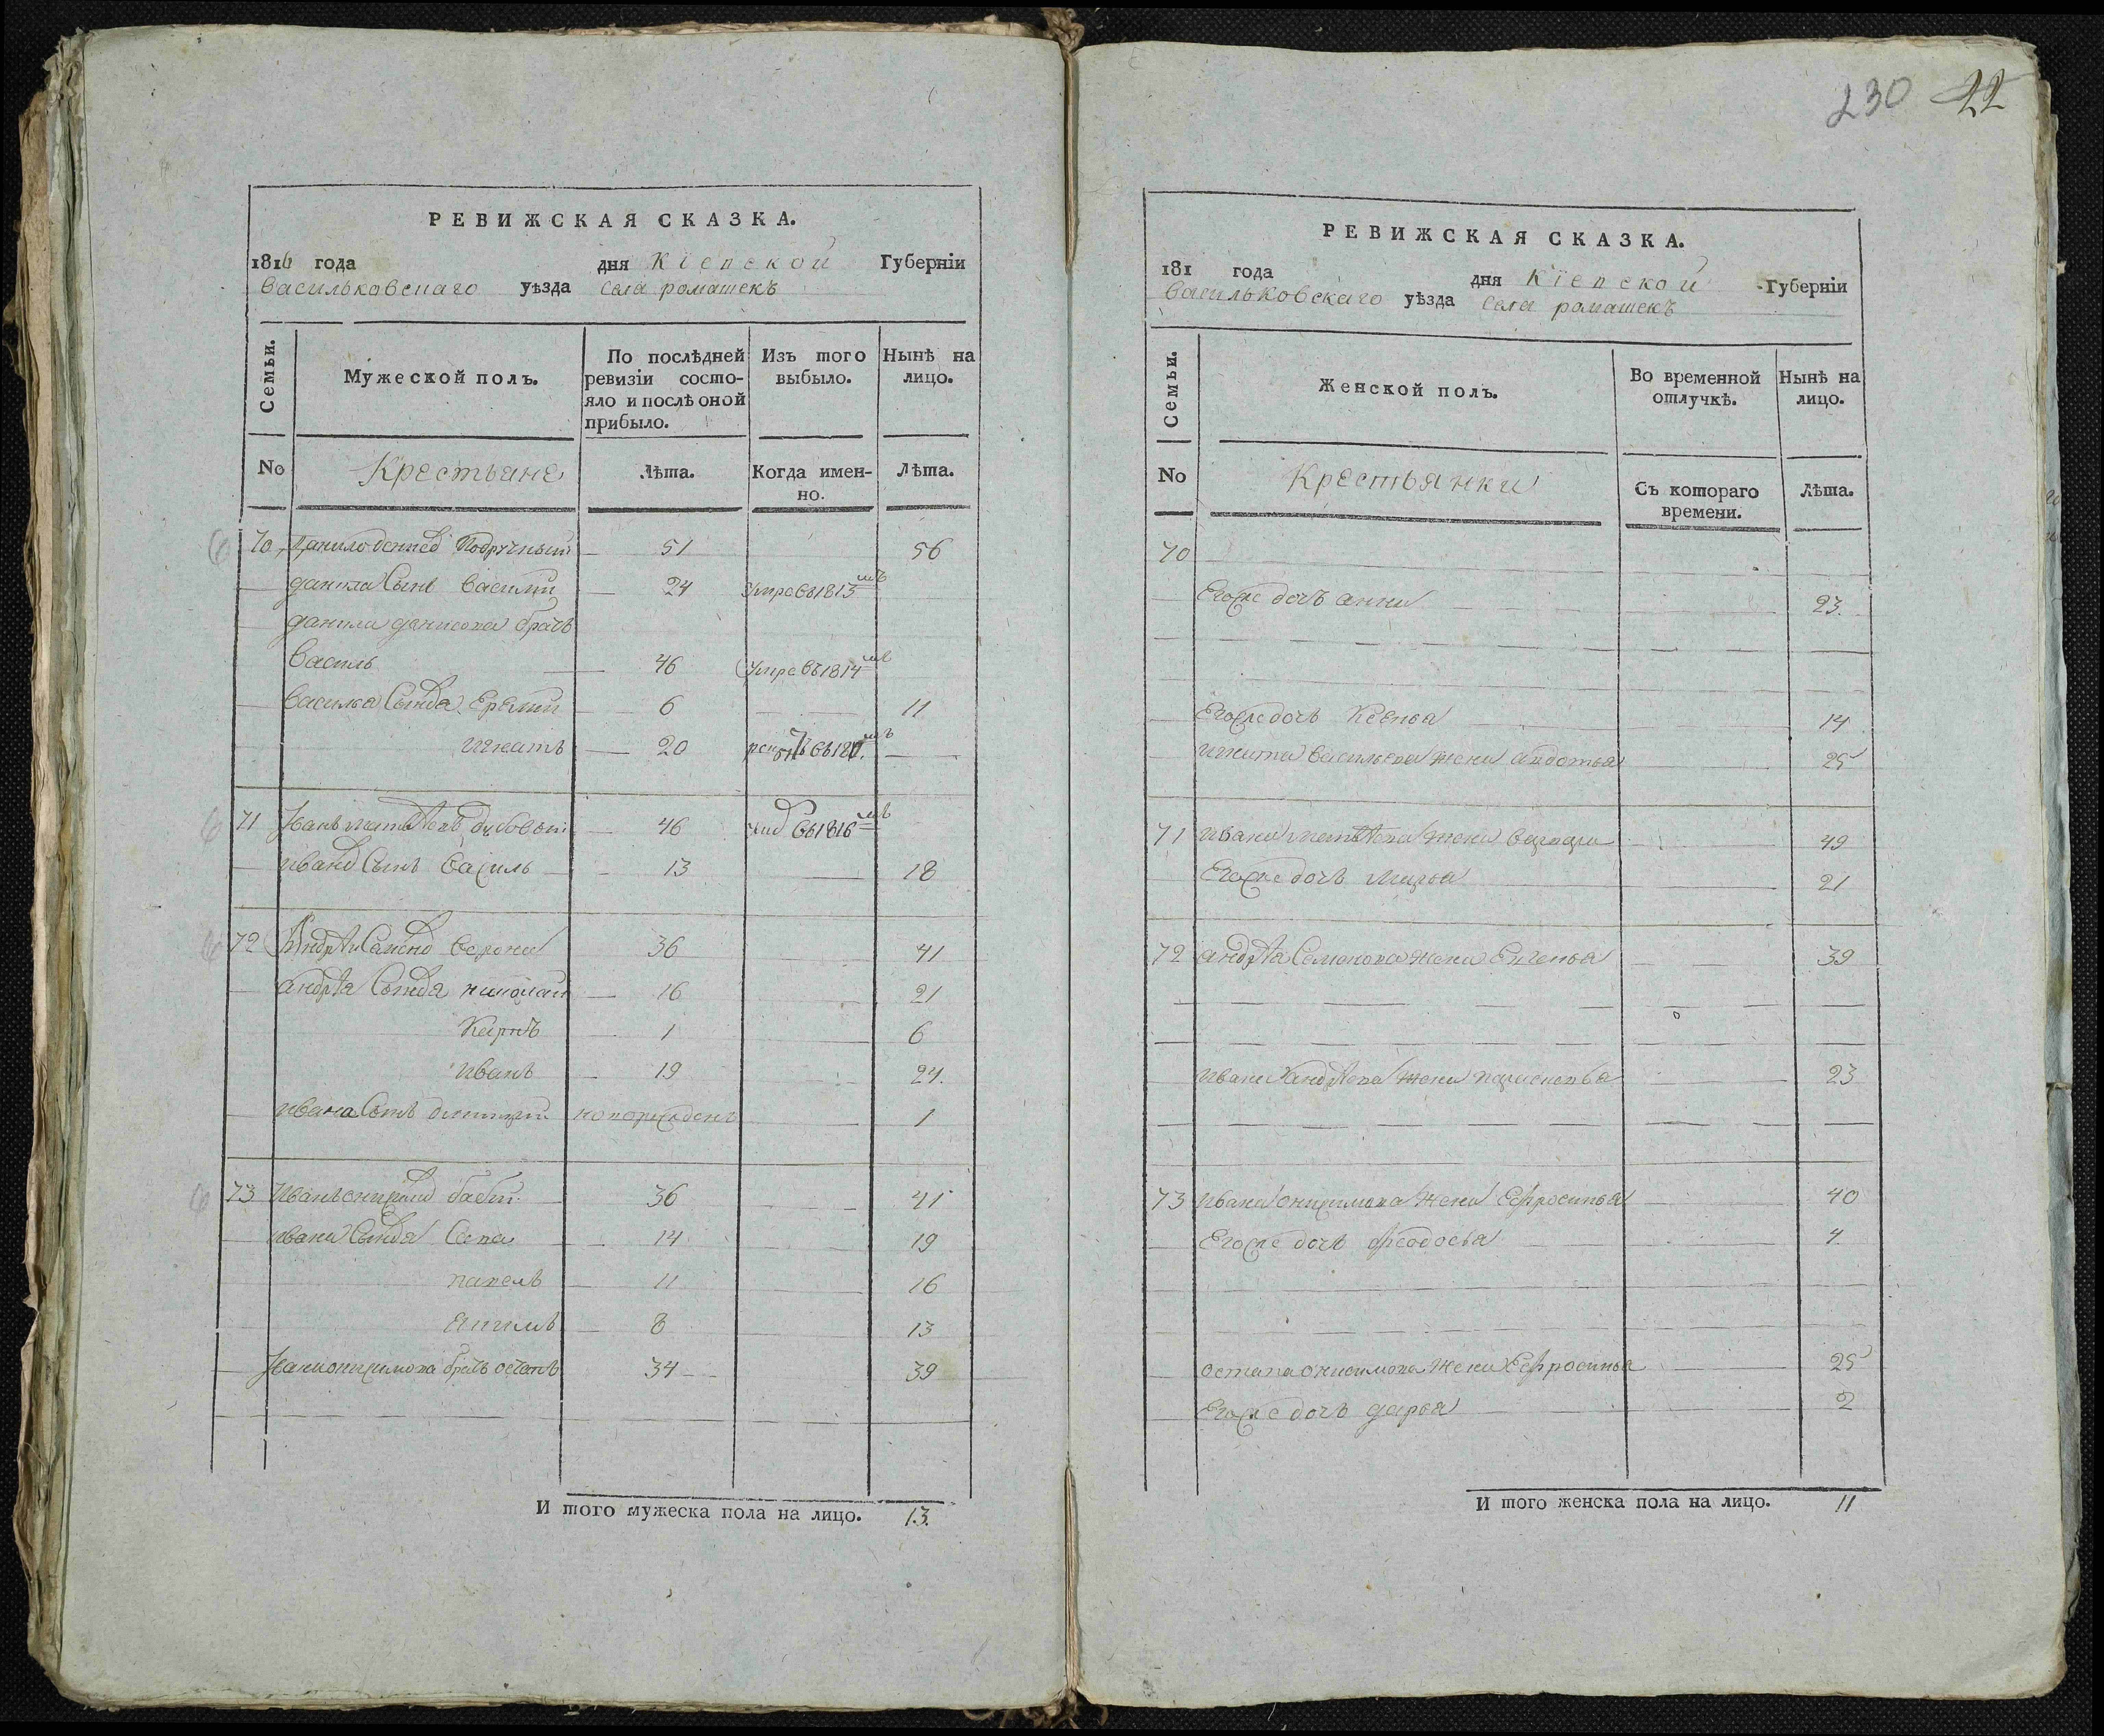 230 22
РЕВИЖСКАЯ СКАЗКА.
1816 года дня Кіевской Губерніи
Васильковскаго уѣзда села ромашекъ
Семьи.
Мужеской полъ.
По послѣдней ревизіи состо-
яло и послѣ оной
прибыло.
Изъ того
выбыло.
Нынѣ на
лицо.
No Крестьяне Лѣта. Когда имен-
но. Лѣта.
70 51 56
данила Сынъ Василий 24 Умре въ 1813мъ
данила денисова братъ
Василь 46 Умре въ 1814мъ
Василя Сынва Еремий 6 11
игнатъ 20
71 46 въ 1816мъ
ивана Сынъ Василь 13 18
72 Андрѣй 36 41
андрѣя Сынва николай 16 21
Карпъ 1 6
иванъ 19 24.
ивана Сынъ димитрий новорожденъ 1
73 Иванъ 36 41
ивана Сынва Сава 14 19
павелъ 11 16
8 13
ивана онисимова братъ остапъ 34 39
И того мужеска пола на лицо. 13.
РЕВИЖСКАЯ СКАЗКА.
181 года дня Кіевской Губерніи
Васильковскаго уѣзда села ромашекъ
Семьи.
Женской полъ.
Во временной
отлучкѣ.
Нынѣ на
лицо.
No Крестьянки Съ котораго
времени. Лѣта.
70
Егоже дочь анна 23.
Егоже дочь Ксенья 14
игната Васильева жена авдотья 25
71 ивана матвѣева жена варвара 49
Егоже дочь марья 21
72 андрѣя Семенова жена Евгенья 39
ивана андрѣева жена парасковья 23
73 ивана онисимова жена Ефросинья 40
Егоже дочь феодосья 4
остапа онисимова жена Ефросинья 25
Егоже дочь дарья 2
И того женска пола на лицо. 11